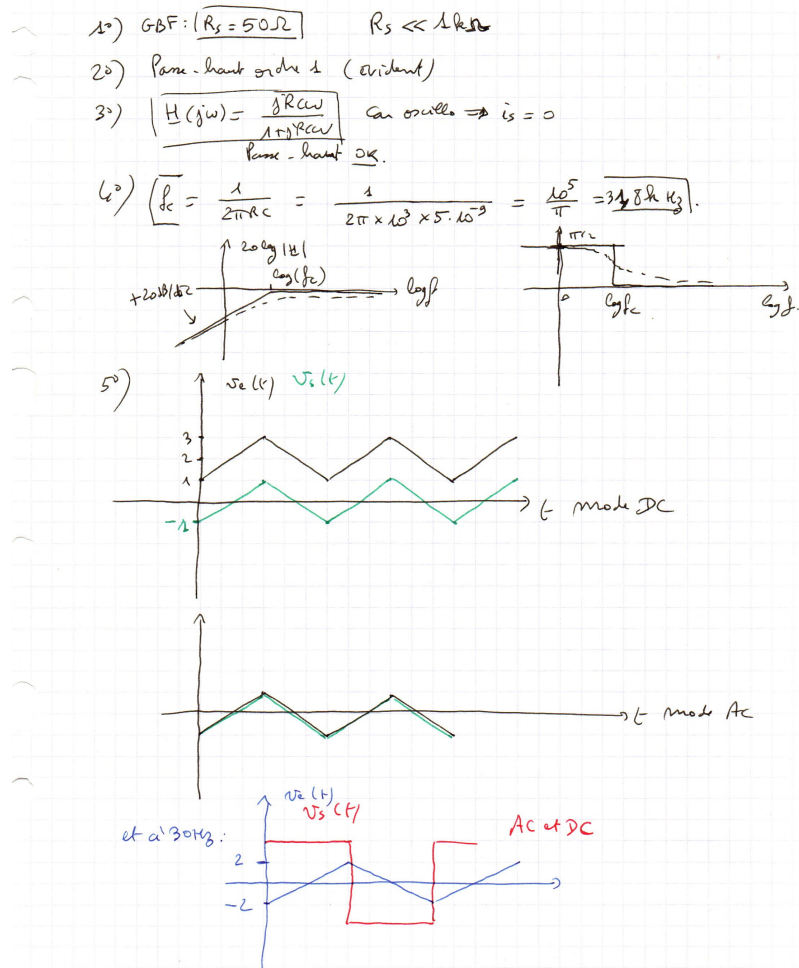 1°) GBF : Rs = 50Ω Rs << 1kΩ
2°) Passe-haut ordre 1 (évident)
3°) H(jω) = jRCω / 1+jRCω car oscillo ⇒ is = 0
Passe-haut OK.
4°) fc = 1 / 2πRC = 1 / 2π × 10³ × 5.10⁻⁹ = 10⁵ / π = 31,8k Hz.
20 log |H|
log(fc)
+20dB/déc
log f
π/2
0
log fc
log f.
5°) ve(t) vs(t)
3
2
1
-1
t mode DC
t mode AC
et à 30Hz :
ve(t)
vs(t)
AC et DC
2
-2